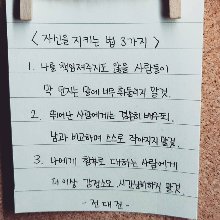 < 자신을 지키는 법 3가지 >
1. 나를 책임져주지도 않을 사람들이
막 던지는 말에 너무 휘둘리지 말 것.
2. 뛰어난 사람에게는 겸손히 배우되,
남과 비교하며 스스로 작아지지 말 것.
3. 나에게 함부로 대하는 사람에게
더 이상 감정소모, 시간낭비하지 말 것.
- 전대진 -